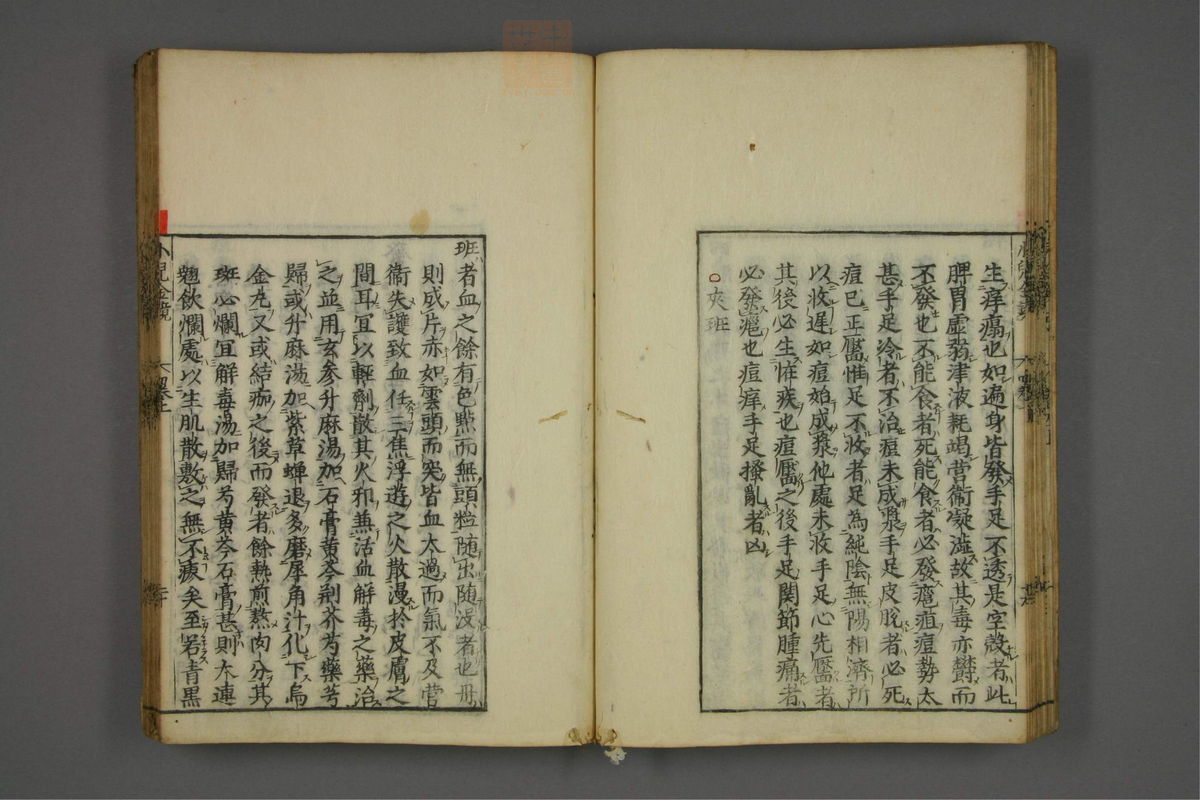 生痒癘也如遍身皆發手足不透是空殻者此
脾胃虚弱津液耗竭营衛凝澁故其毒亦欝而
不發也不能食者死能食者必發癰疽痘勢太
甚手足冷者不治痘未成漿手足皮脫者必死
痘已正靨惟足不收者足為純陰無陽相濟所
以收遲如痘始成漿他處未收手足心先靨者
其後必生怪疾也痘靨之後手足關節腫痛者
必發癰也痘痒手足搔亂者凶
○夾班
班者血之餘有色點而無頭粒随出随没者也毋
則成片亦如雲頭而突皆血太過而氣不及营
衛失護致血任三焦浮遊之火散漫於皮膚之
間耳宜以輕劑散其火邪兼活血解毒之藥治
之並用玄參升麻湯加石膏黄芩荆芥芍藥芎
歸或升麻湯加紫草蟬退多磨犀角汁化下烏
金丸又或結痂之後而發者餘熱煎熬肉分其
班必爛宜解毒湯加歸芍黄芩石膏甚則大連
翹飲爛處以生肌散敷之無不痊矣至若青黑
小兒金鏡